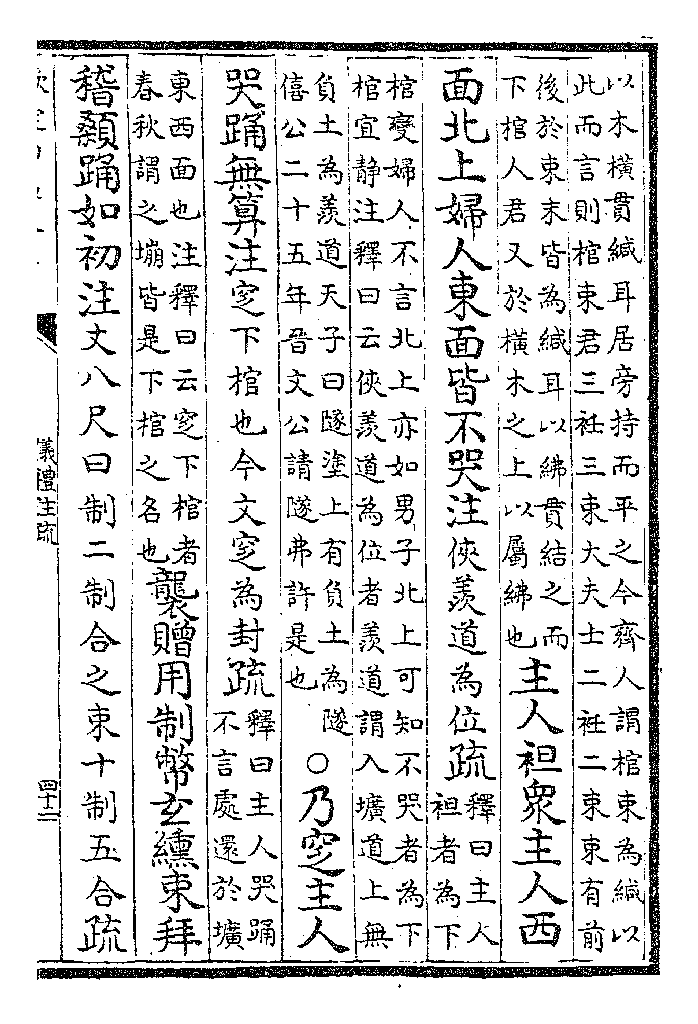 以木橫貫緘耳居旁持而平之今齊人謂棺束為緘以
此而言則棺束君三衽三束大夫士二衽二束束有前
後於束末皆為緘耳以紼貫結之而
下棺人君又於橫木之上以屬紼也
主人袒衆主人西
面北上婦人東面皆不哭注俠羨道為位疏
釋曰主人
袒者為下
棺變婦人不言北上亦如男子北上可知不哭者為下
棺宜静注釋曰云俠羨道為位者羨道謂入壙道上無
負土為羨道天子曰隧塗上有負土為隧
僖公二十五年晉文公請隧弗許是也
○乃窆主人
哭踊無算注窆下棺也今文窆為封疏
釋曰主人哭踊
不言處還於壙
東西面也注釋曰云窆下棺者
春秋謂之塴皆是下棺之名也
襲贈用制幣玄纁束拜
稽顙踊如初注丈八尺曰制二制合之束十制五合疏
儀禮注疏
四十二